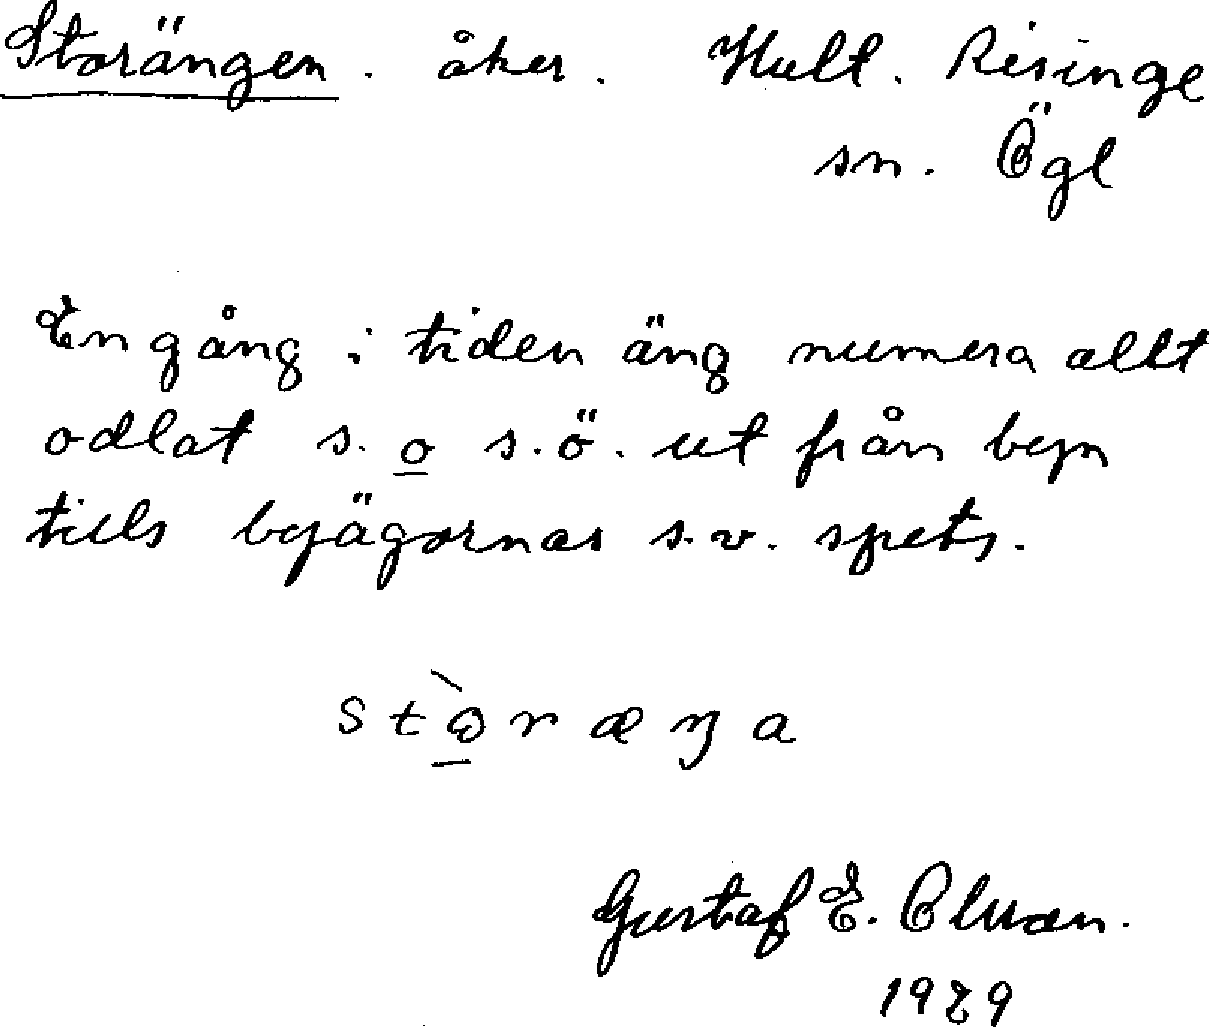 Storängen. åker. Hult. Risinge
sn. Ögl
En gång i tiden äng numera allt
odlat s. o s.ö. ut från byn
tills byägornas s.v. spets.
Gustaf E. Olsson.
1929